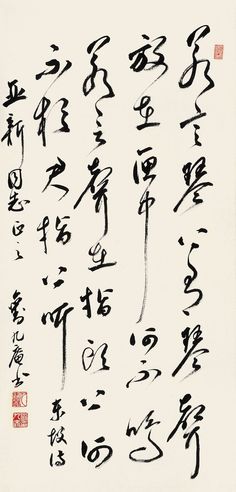 若言琴上有琴声
放在匣中何不鸣
若言声在指头上何
不于君指上听 东坡诗
亚新同志正之
刘凡庵书